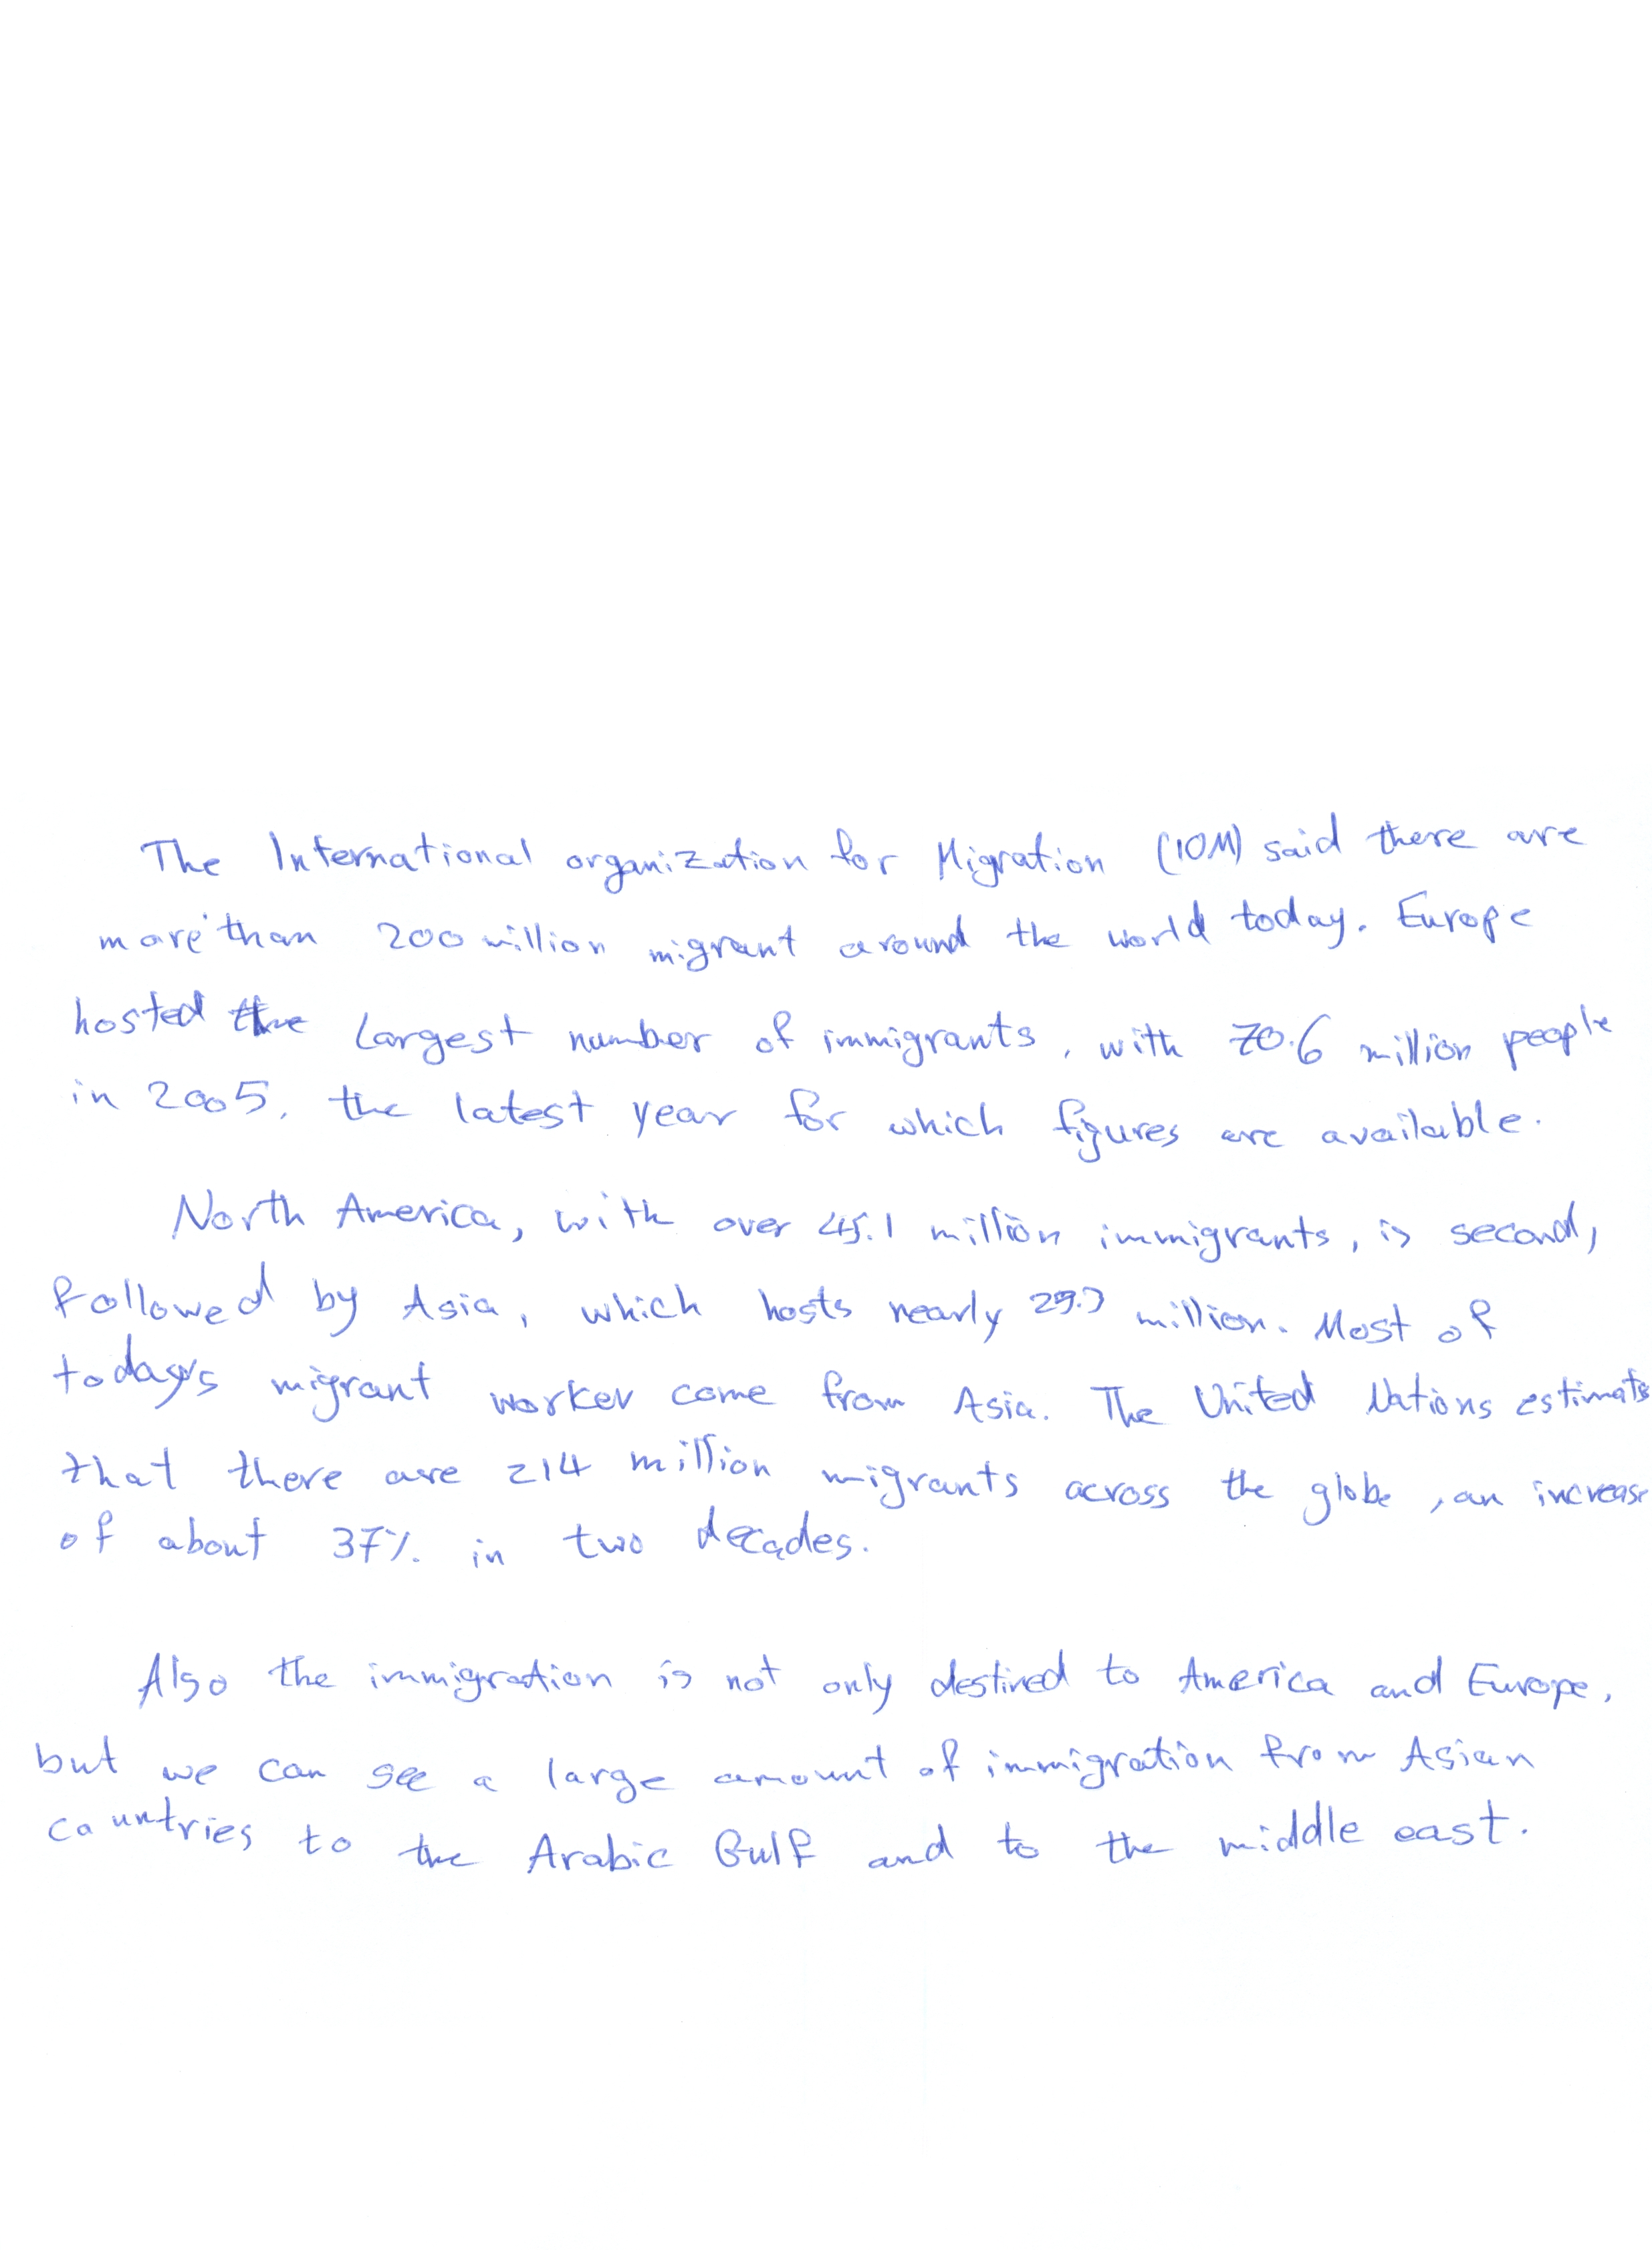 The International organization for Migration (IOM) said there are
more than 200 million migrant around the world today. Europe
hosted the largest number of immigrants, with 70.6 million people
in 2005, the latest year for which figures are available.
North America, with over 45.1 million immigrants, is second,
followed by Asia, which hosts nearly million. Most of
today's migrant worker come from Asia. The United Nations estimate
that there are 214 million migrants across the globe, an increase
of about 37% in two decades.
Also the immigration is not only destined to America and Europe,
but we can see a large amount of immigration from Asian
countries to the Arabic Gulf and to the middle east.